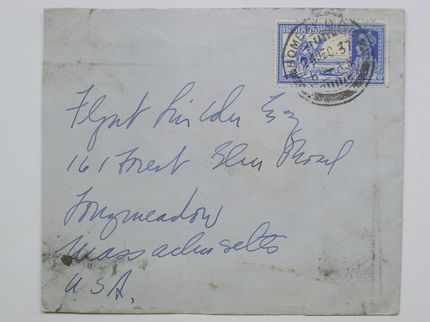 INDIA POSTAGE
BOMBAY
DEC. 37
Flynt Lincoln Esq
161 Forest Glen Road
Longmeadow
Massachusetts
U.S.A.